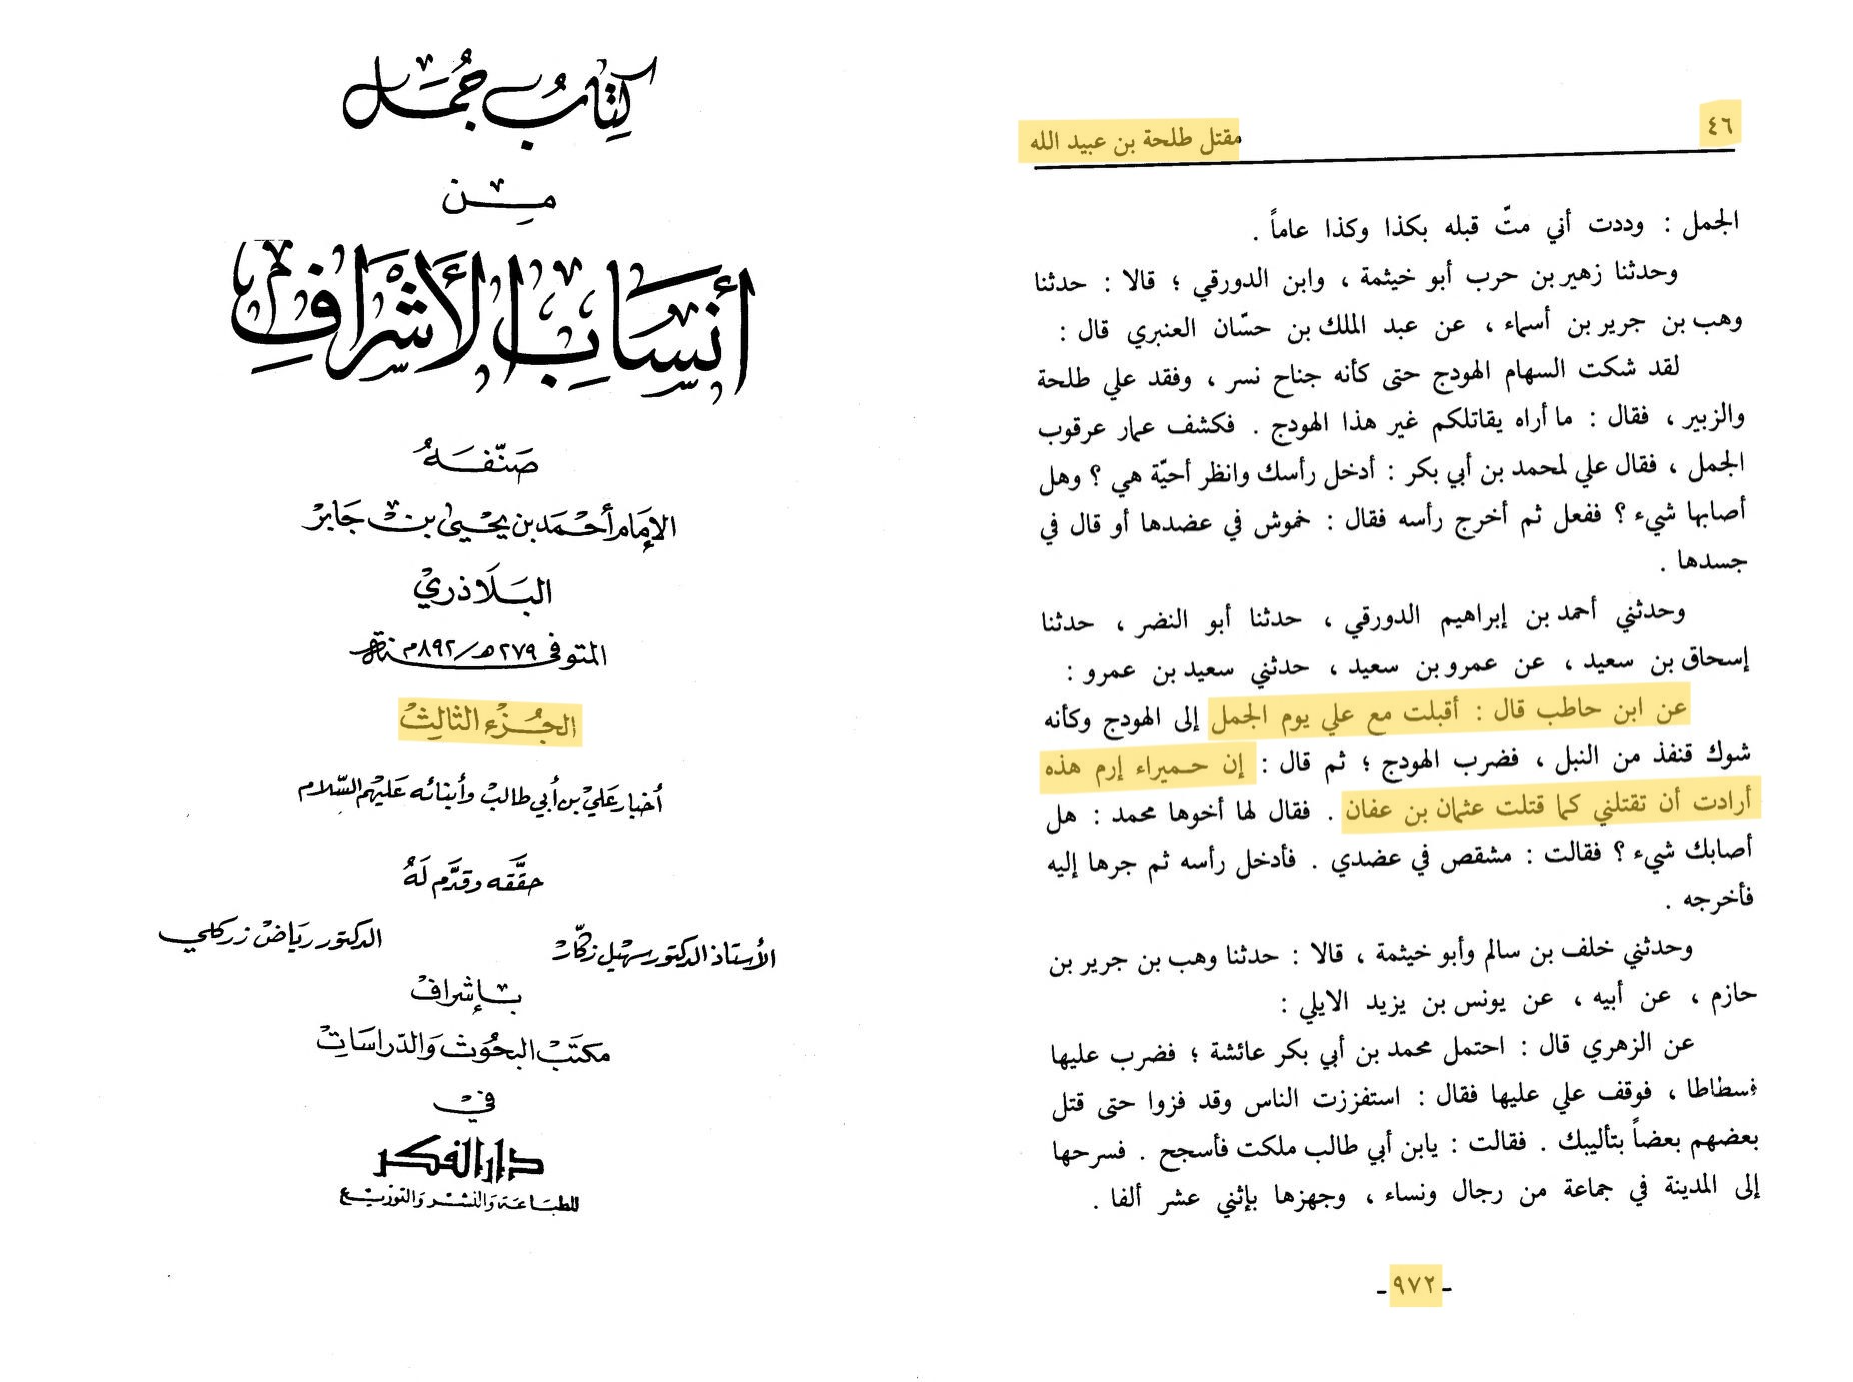 كِتَابُ جُمَل
مِن
أَنسَابِ الأَشْرَافِ
صَنَّفَهُ
الإمَام أحْمَد بن يَحْيىٰ بنْ جَابِرْ
البَلَاذريْ
المتوفى سنة ٢٧٩ هـ/٨٩٢م
الجُزء الثالِثْ
أخبار عَليْ بن أبي طالبْ وأبنائه عَليهم السّلام
حقَّقه وقدَّم لَهُ
الأستاذ الدكتور سهيل زكّار
الدكتور ريَاضْ زركلي
بإشرافْ
مكتَبْ البحُوثْ وَالدّراسَاتْ
فيْ
دار الفكر
للطبَاعَة وَالنشْر وَالتوزيْع
٤٦
مقتل طلحة بن عبيد الله
الجمل : وددت أني متّ قبله بكذا وكذا عاماً .
وحدثنا زهير بن حرب أبو خيثمة ، وابن الدورقي ؛ قالا : حدثنا
وهب بن جرير بن أسماء ، عن عبد الملك بن حسّان العنبري قال :
لقد شكت السهام الهودج حتى كأنه جناح نسر ، وفقد علي طلحة
والزبير ، فقال : ما أراه يقاتلكم غير هذا الهودج . فكشف عمار عرقوب
الجمل ، فقال علي لمحمد بن أبي بكر : أدخل رأسك وانظر أحيّة هي ؟ وهل
أصابها شيء ؟ ففعل ثم أخرج رأسه فقال : خموش في عضدها أو قال في
جسدها .
وحدثني أحمد بن إبراهيم الدورقي ، حدثنا أبو النضر ، حدثنا
إسحاق بن سعيد ، عن عمرو بن سعيد ، حدثني سعيد بن عمرو :
عن ابن حاطب قال : أقبلت مع علي يوم الجمل إلى الهودج وكأنه
شوك قنفذ من النبل ، فضرب الهودج ؛ ثم قال : إن حميراء إرم هذه
أرادت أن تقتلني كما قتلت عثمان بن عفان . فقال لها أخوها محمد : هل
أصابك شيء ؟ فقالت : مشقص في عضدي . فأدخل رأسه ثم جرها إليه
فأخرجه .
وحدثني خلف بن سالم وأبو خيثمة ، قالا : حدثنا وهب بن جرير بن
حازم ، عن أبيه ، عن يونس بن يزيد الايلي :
عن الزهري قال : احتمل محمد بن أبي بكر عائشة ؛ فضرب عليها
فسطاطا ، فوقف علي عليها فقال : استفززت الناس وقد فزوا حتى قتل
بعضهم بعضاً بتأليبك . فقالت : يابن أبي طالب ملكت فأسجح . فسرحها
إلى المدينة في جماعة من رجال ونساء ، وجهزها بإثني عشر ألفا .
- ٩٧٢ -